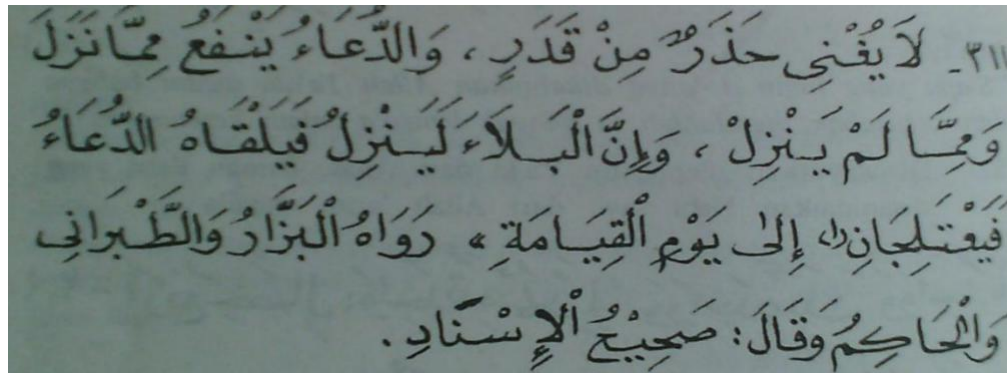 ٣١١ـ لَا يُغْنِى حَذَرٌ مِنْ قَدَرٍ ، وَالدُّعَاءُ يَنْفَعُ مِمَّا نَزَلَ
وَمِمَّا لَمْ يَنْزِلْ ، وَإِنَّ الْبَلَاءَ لَيَنْزِلُ فَيَلْقَاهُ الدُّعَاءُ
فَيَعْتَلِجَانِ (١) إِلَى يَوْمِ الْقِيَامَةِ » رَوَاهُ الْبَزَّارُ وَالطَّبَرَانِى
وَالْحَاكِمُ وَقَالَ: صَحِيْحُ الْإِسْنَادِ.